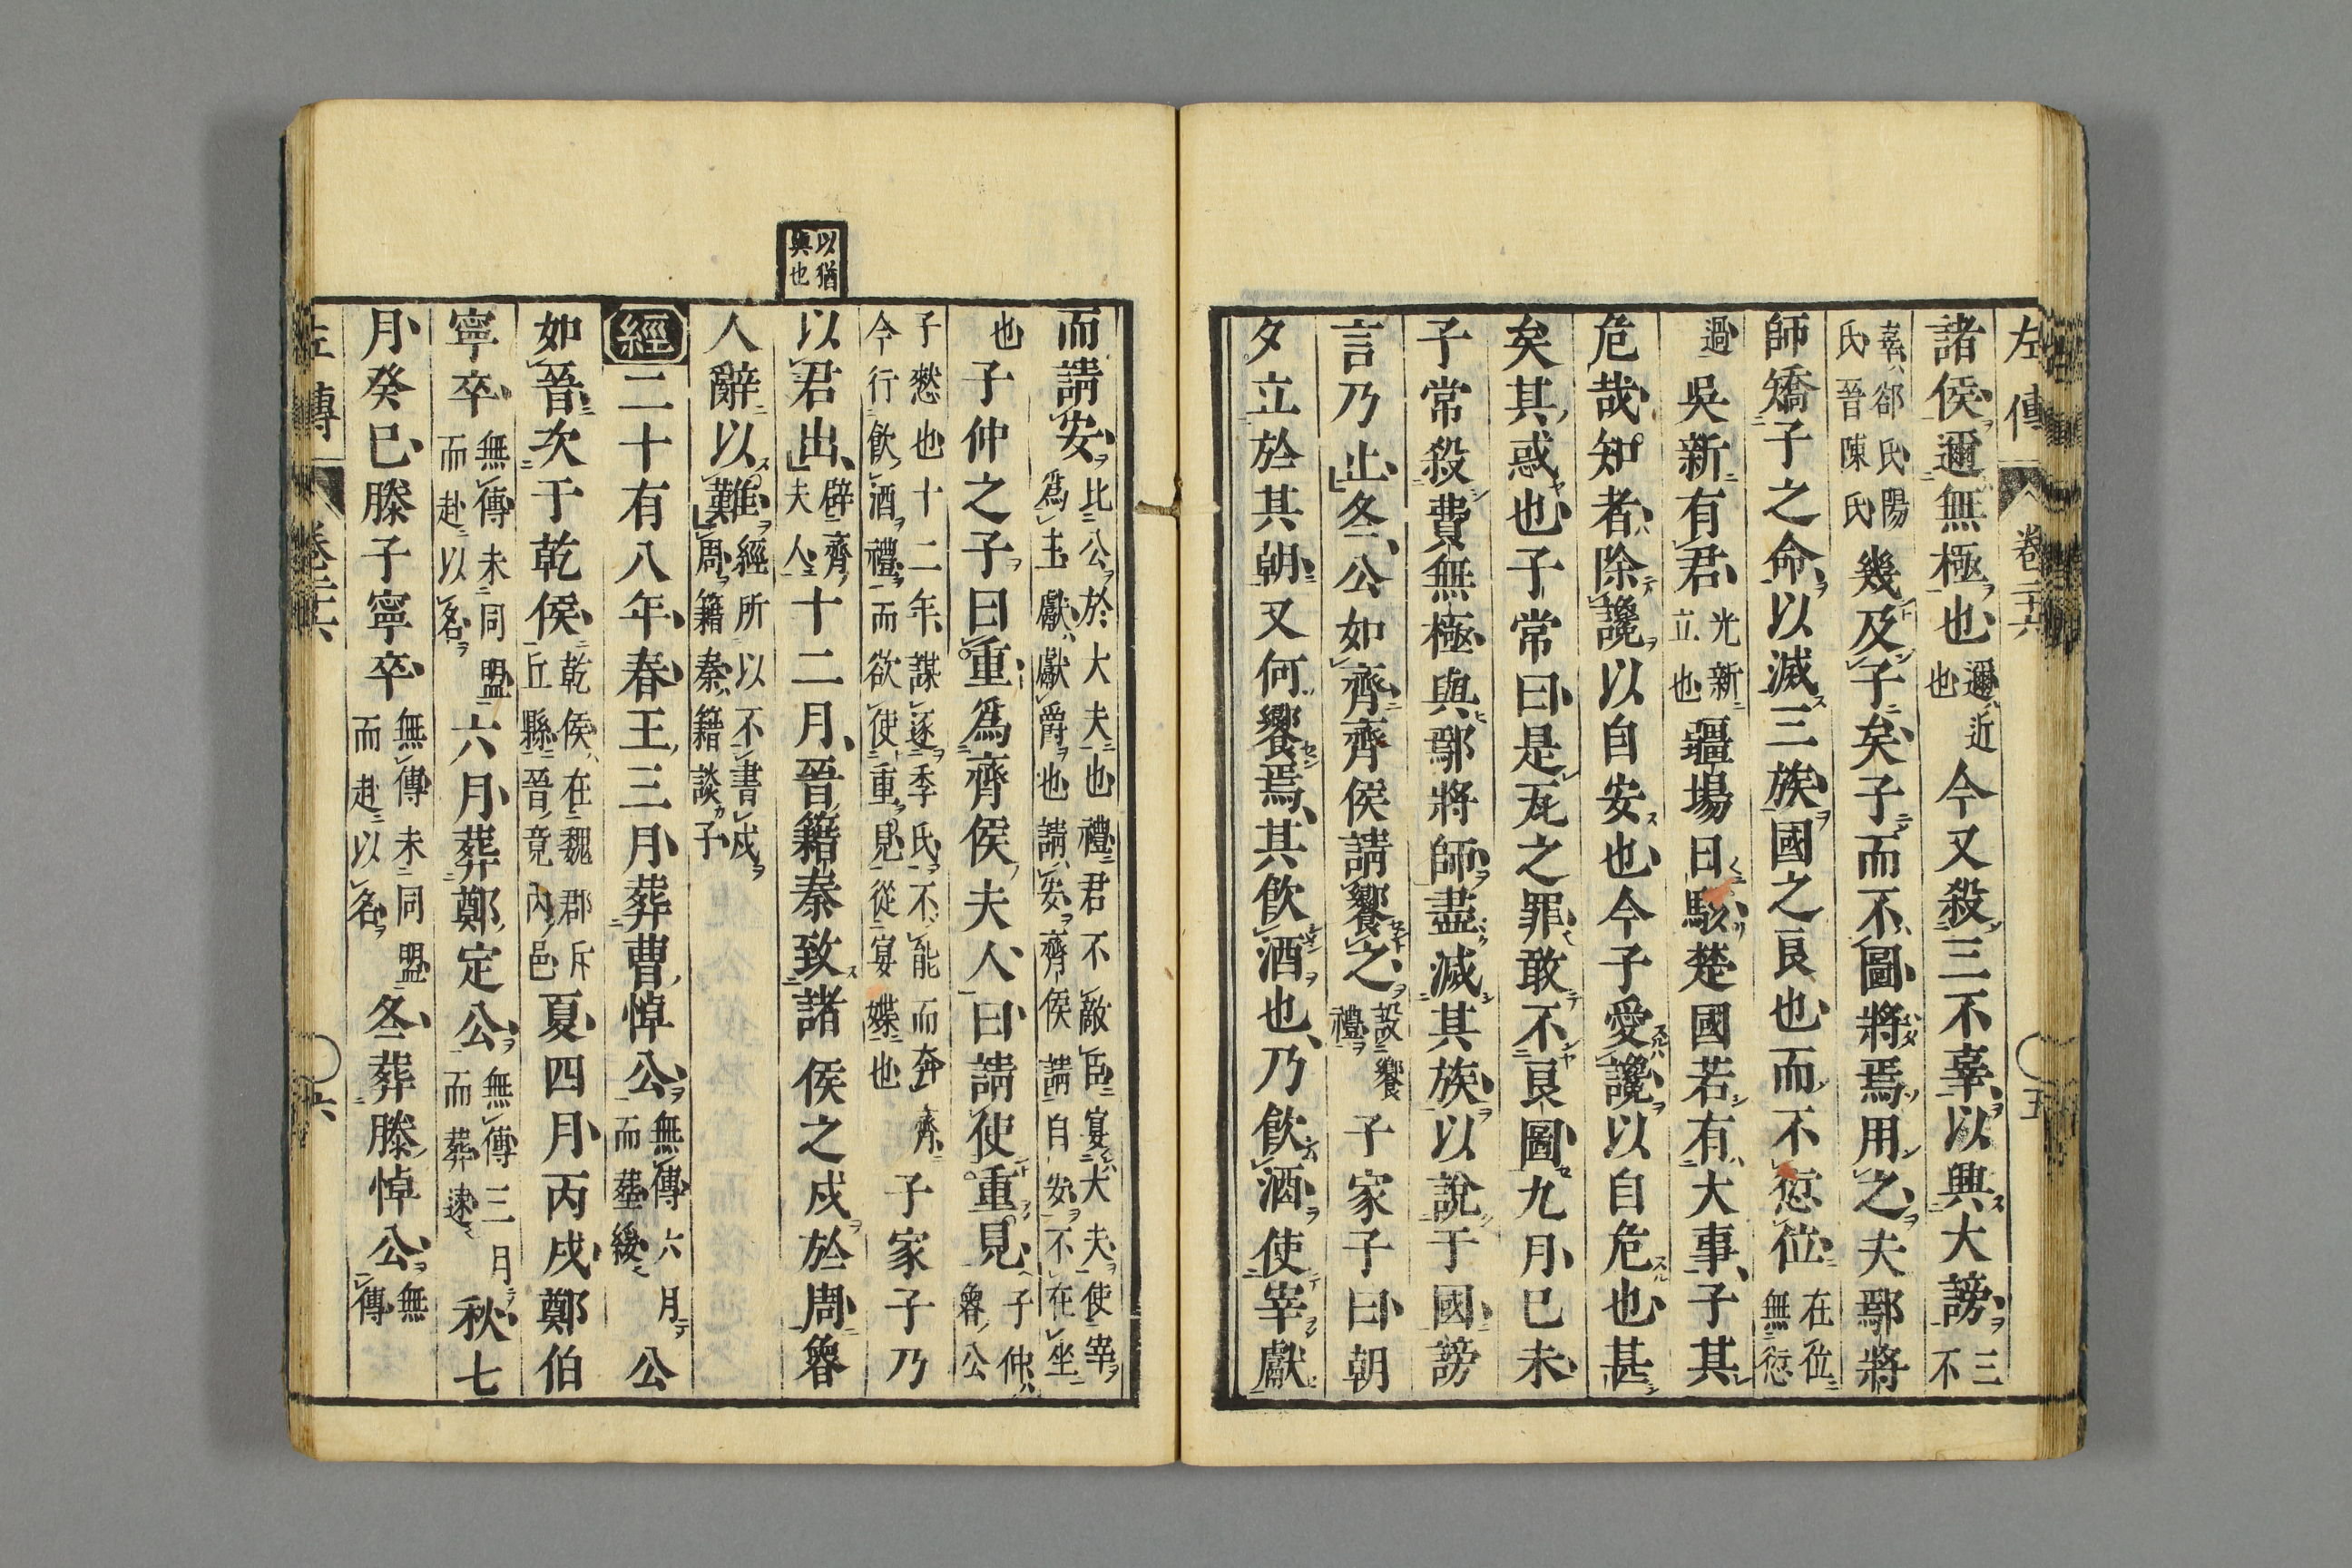 左傳 卷二十六 五
諸侯邇無極也邇近也今又殺三不辜以興大謗三不
辜郤氏陽氏晉陳氏幾及子矣子而不圖將焉用之夫鄢將
師矯子之命以滅三族國之良也而不愆位在位無愆
過吳新有君光新立也疆場日駭楚國若有大事子其
危哉知者除讒以自安也今子愛讒以自危也甚
矣其惑也子常曰是瓦之罪敢不良圖九月己未
子常殺費無極與鄢將師盡滅其族以說于國謗
言乃止冬公如齊齊侯請饗之設饗禮子家子曰朝
夕立於其朝又何饗焉其飲酒也乃飲酒使宰獻
而請安比公於大夫也禮君不敵臣宴大夫使宰爲主獻獻爵也請安齊侯請自安不在坐
也子仲之子曰重爲齊侯夫人曰請使重見子仲魯公
子憖也十二年謀逐季氏不能而奔齊今行飲酒禮而欲使重見從宴媟也子家子乃
以君出辟齊夫人十二月晉籍秦致諸侯之戍於周魯
人辭以難經所以不書戍周籍秦籍談子
經二十有八年春王三月葬曹悼公無傳六月而葬緩公
如晉次于乾侯乾侯在魏郡斥丘縣晉竟內邑夏四月丙戌鄭伯
寧卒無傳未同盟而赴以名六月葬鄭定公無傳三月而葬速秋七
月癸巳滕子寧卒無傳未同盟而赴以名冬葬滕悼公無傳
左傳 卷二十六 六
以猶與也